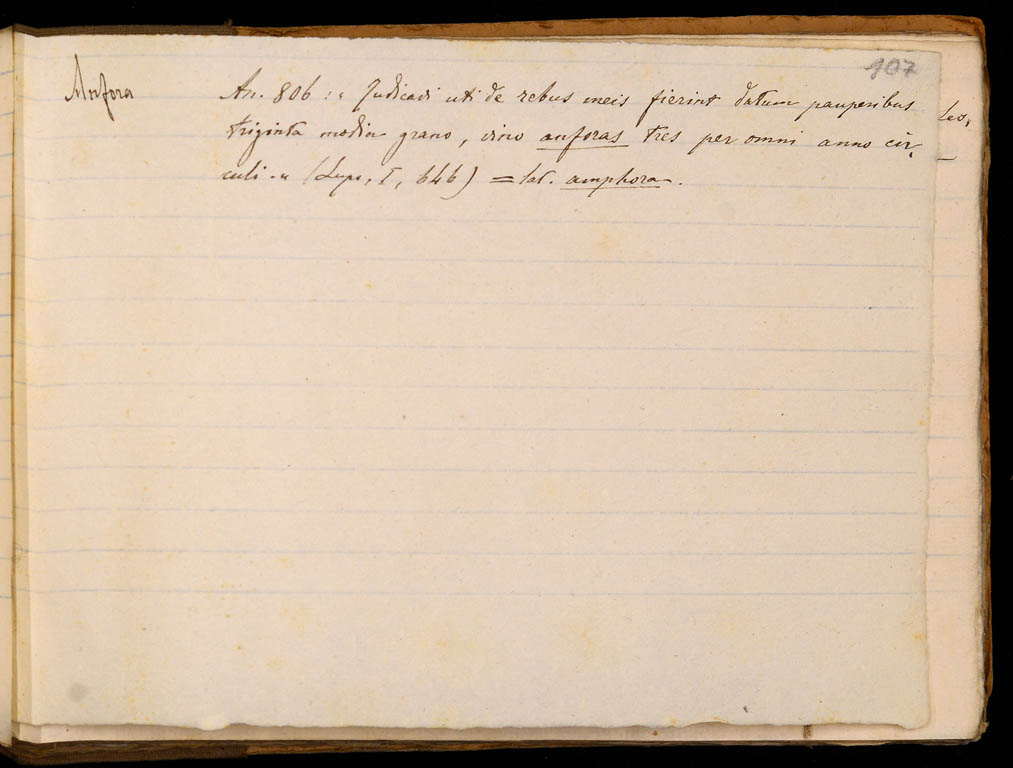 107
Anfora An. 806 : « Judicavi uti de rebus meis fierint datum pauperibus
triginta modia grano, vino anforas tres per omni anno cir-
culi. » (Lupo, I, 646) = lat. amphora.